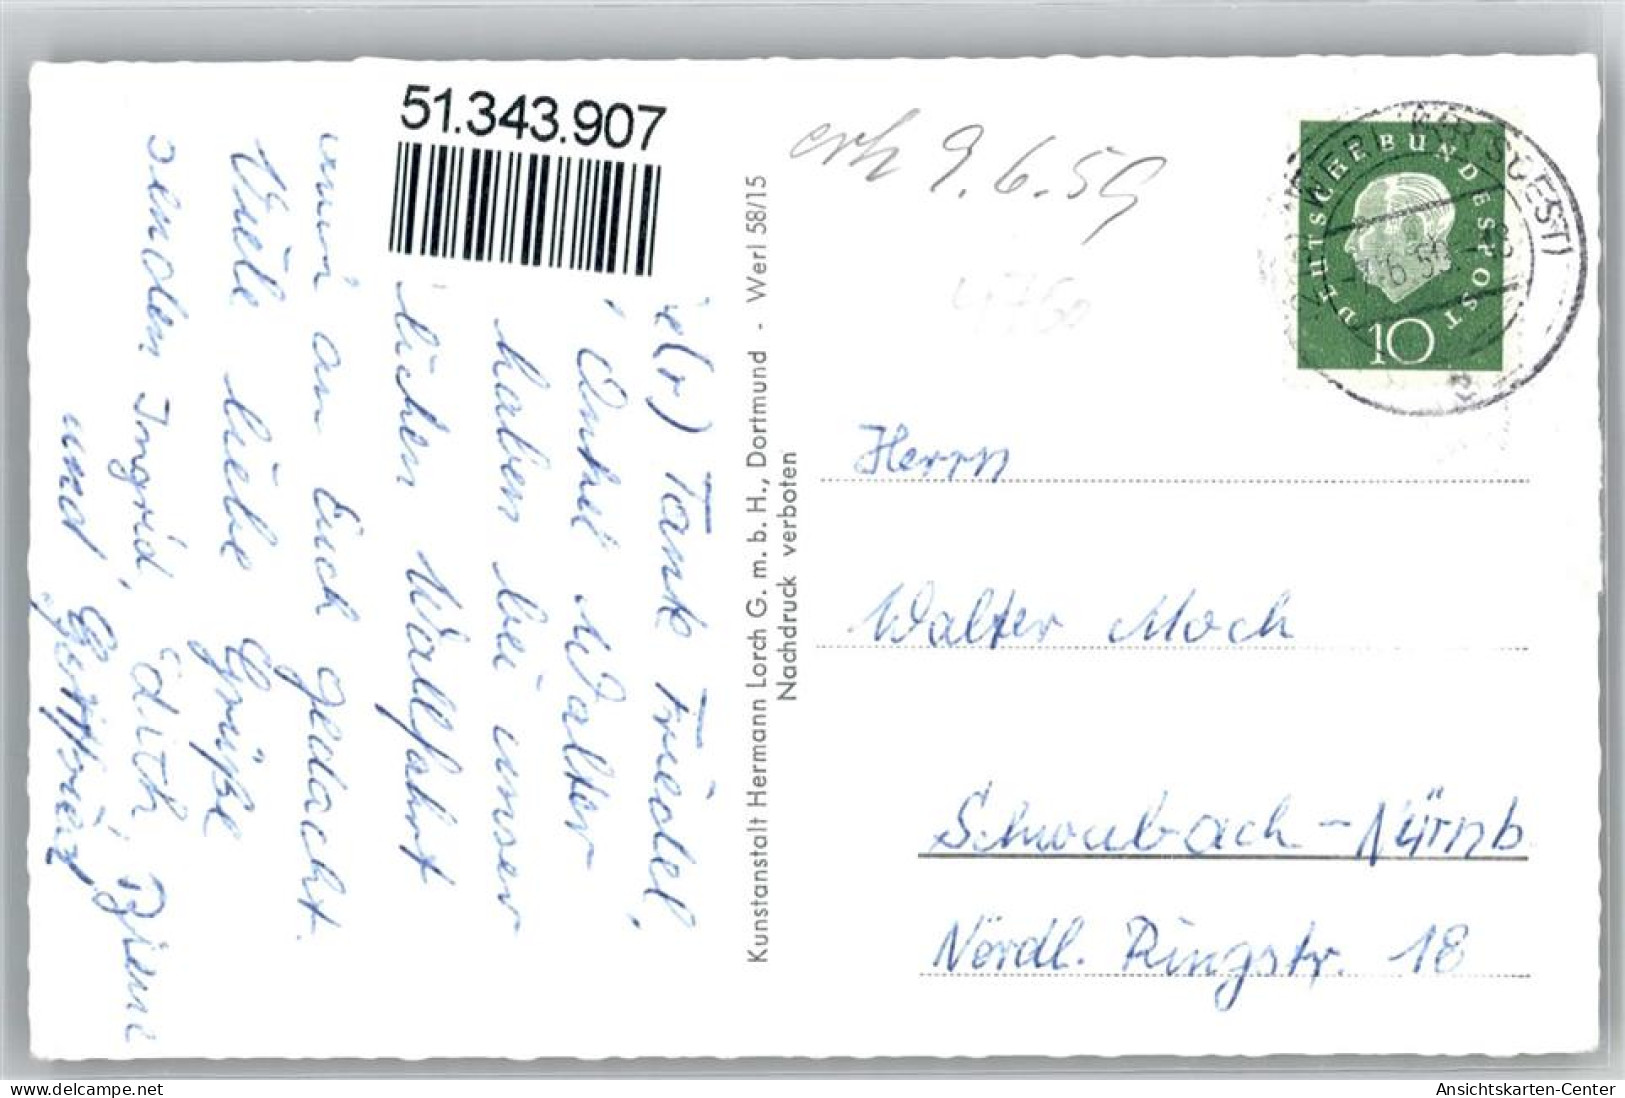 51.343.907
erh 9.6.59
4760
WERL (KR SOEST)
DEUTSCHE BUNDESPOST
10
e(r) Tante Friedel,
Onkel Walter
haben bei unser
lichen Wallfahrt
an Euch gedacht.
Viele liebe Grüße
senden Ingrid, Edith,
und
Kunstanstalt Hermann Lorch G. m. b. H., Dortmund - Werl 58/15
Nachdruck verboten
Herrn
Walter Moch
Schwabach-Nürnb
Nördl. Ringstr. 18
delcampe.net
Ansichtskarten-Center